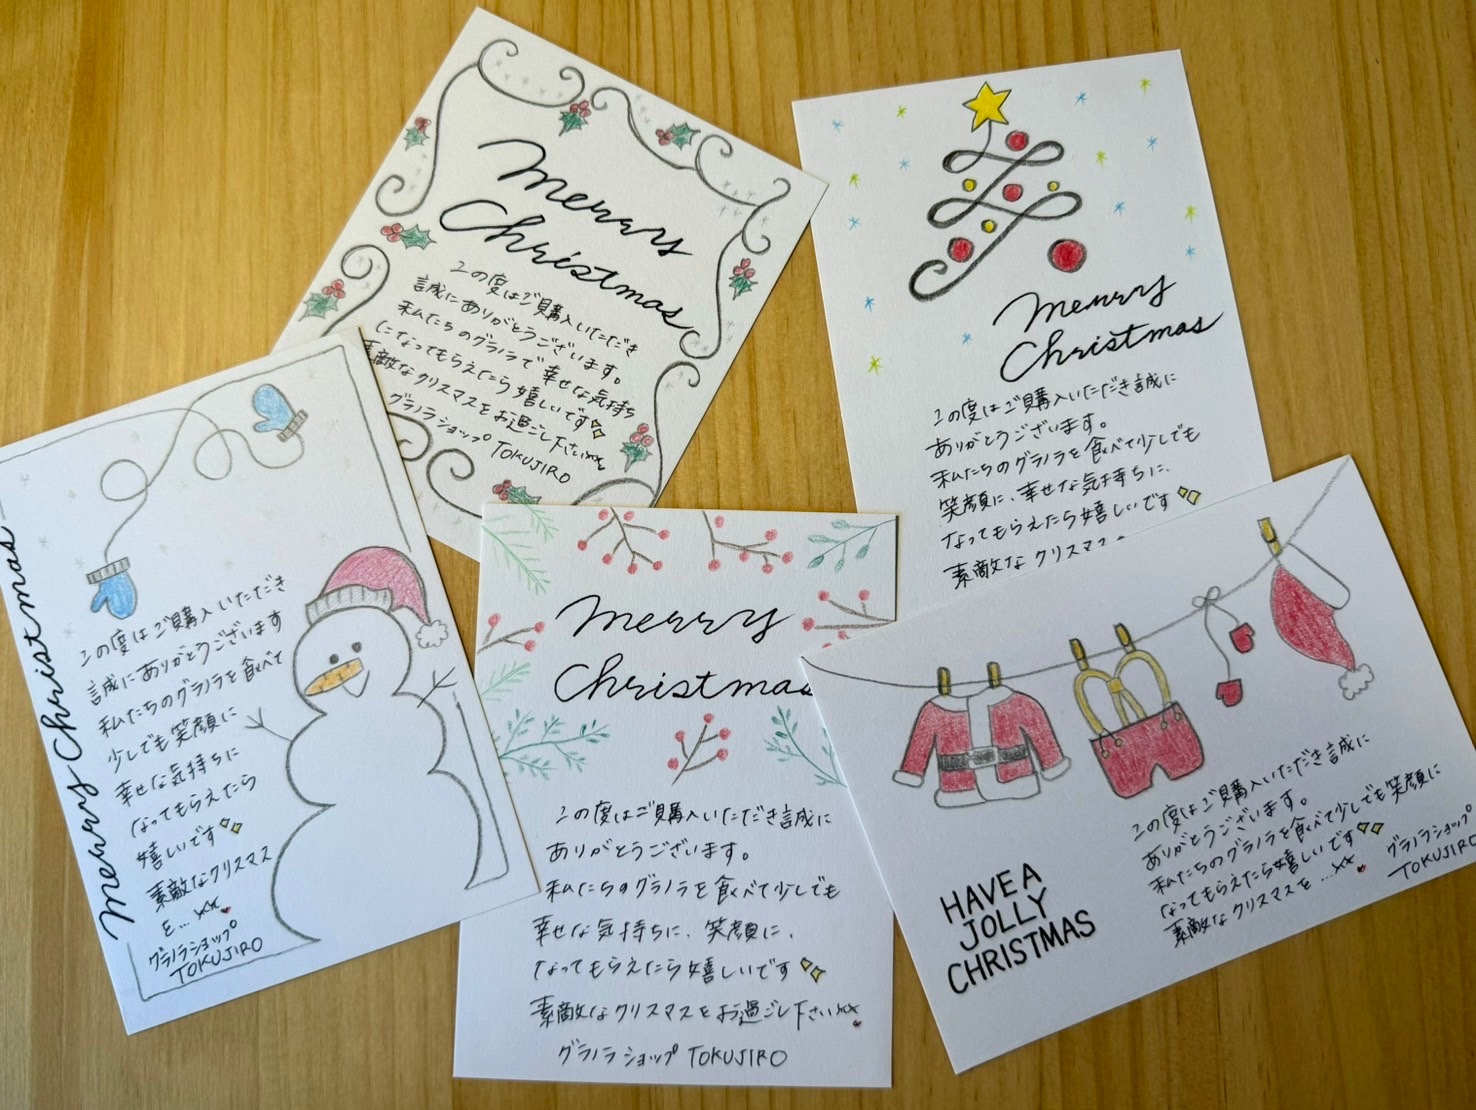 merry
Christmas
この度はご購入いただき
誠にありがとうございます。
私たちのグラノラで幸せな気持ち
になってもらえたら嬉しいです
素敵なクリスマスをお過ごし下さい
グラノラショップ TOKUJIRO
merry
Christmas
この度はご購入いただき誠に
ありがとうございます。
私たちのグラノラを食べて少しでも
笑顔に、幸せな気持ちに、
なってもらえたら嬉しいです
素敵なクリスマス
merry Christmas
この度はご購入いただき
誠にありがとうございます
私たちのグラノラを食べて
少しでも笑顔に
幸せな気持ちに
なってもらえたら
嬉しいです
素敵なクリスマス
を...
グラノラショップ
TOKUJIRO
merry
Christmas
この度はご購入いただき誠に
ありがとうございます。
私たちのグラノラを食べて少しでも
幸せな気持ちに、笑顔に、
なってもらえたら嬉しいです
素敵なクリスマスをお過ごし下さい
グラノラショップ TOKUJIRO
HAVE A
JOLLY
CHRISTMAS
この度はご購入いただき誠に
ありがとうございます。
私たちのグラノラを食べて少しでも笑顔に
なってもらえたら嬉しいです
素敵なクリスマスを...
グラノラショップ
TOKUJIRO